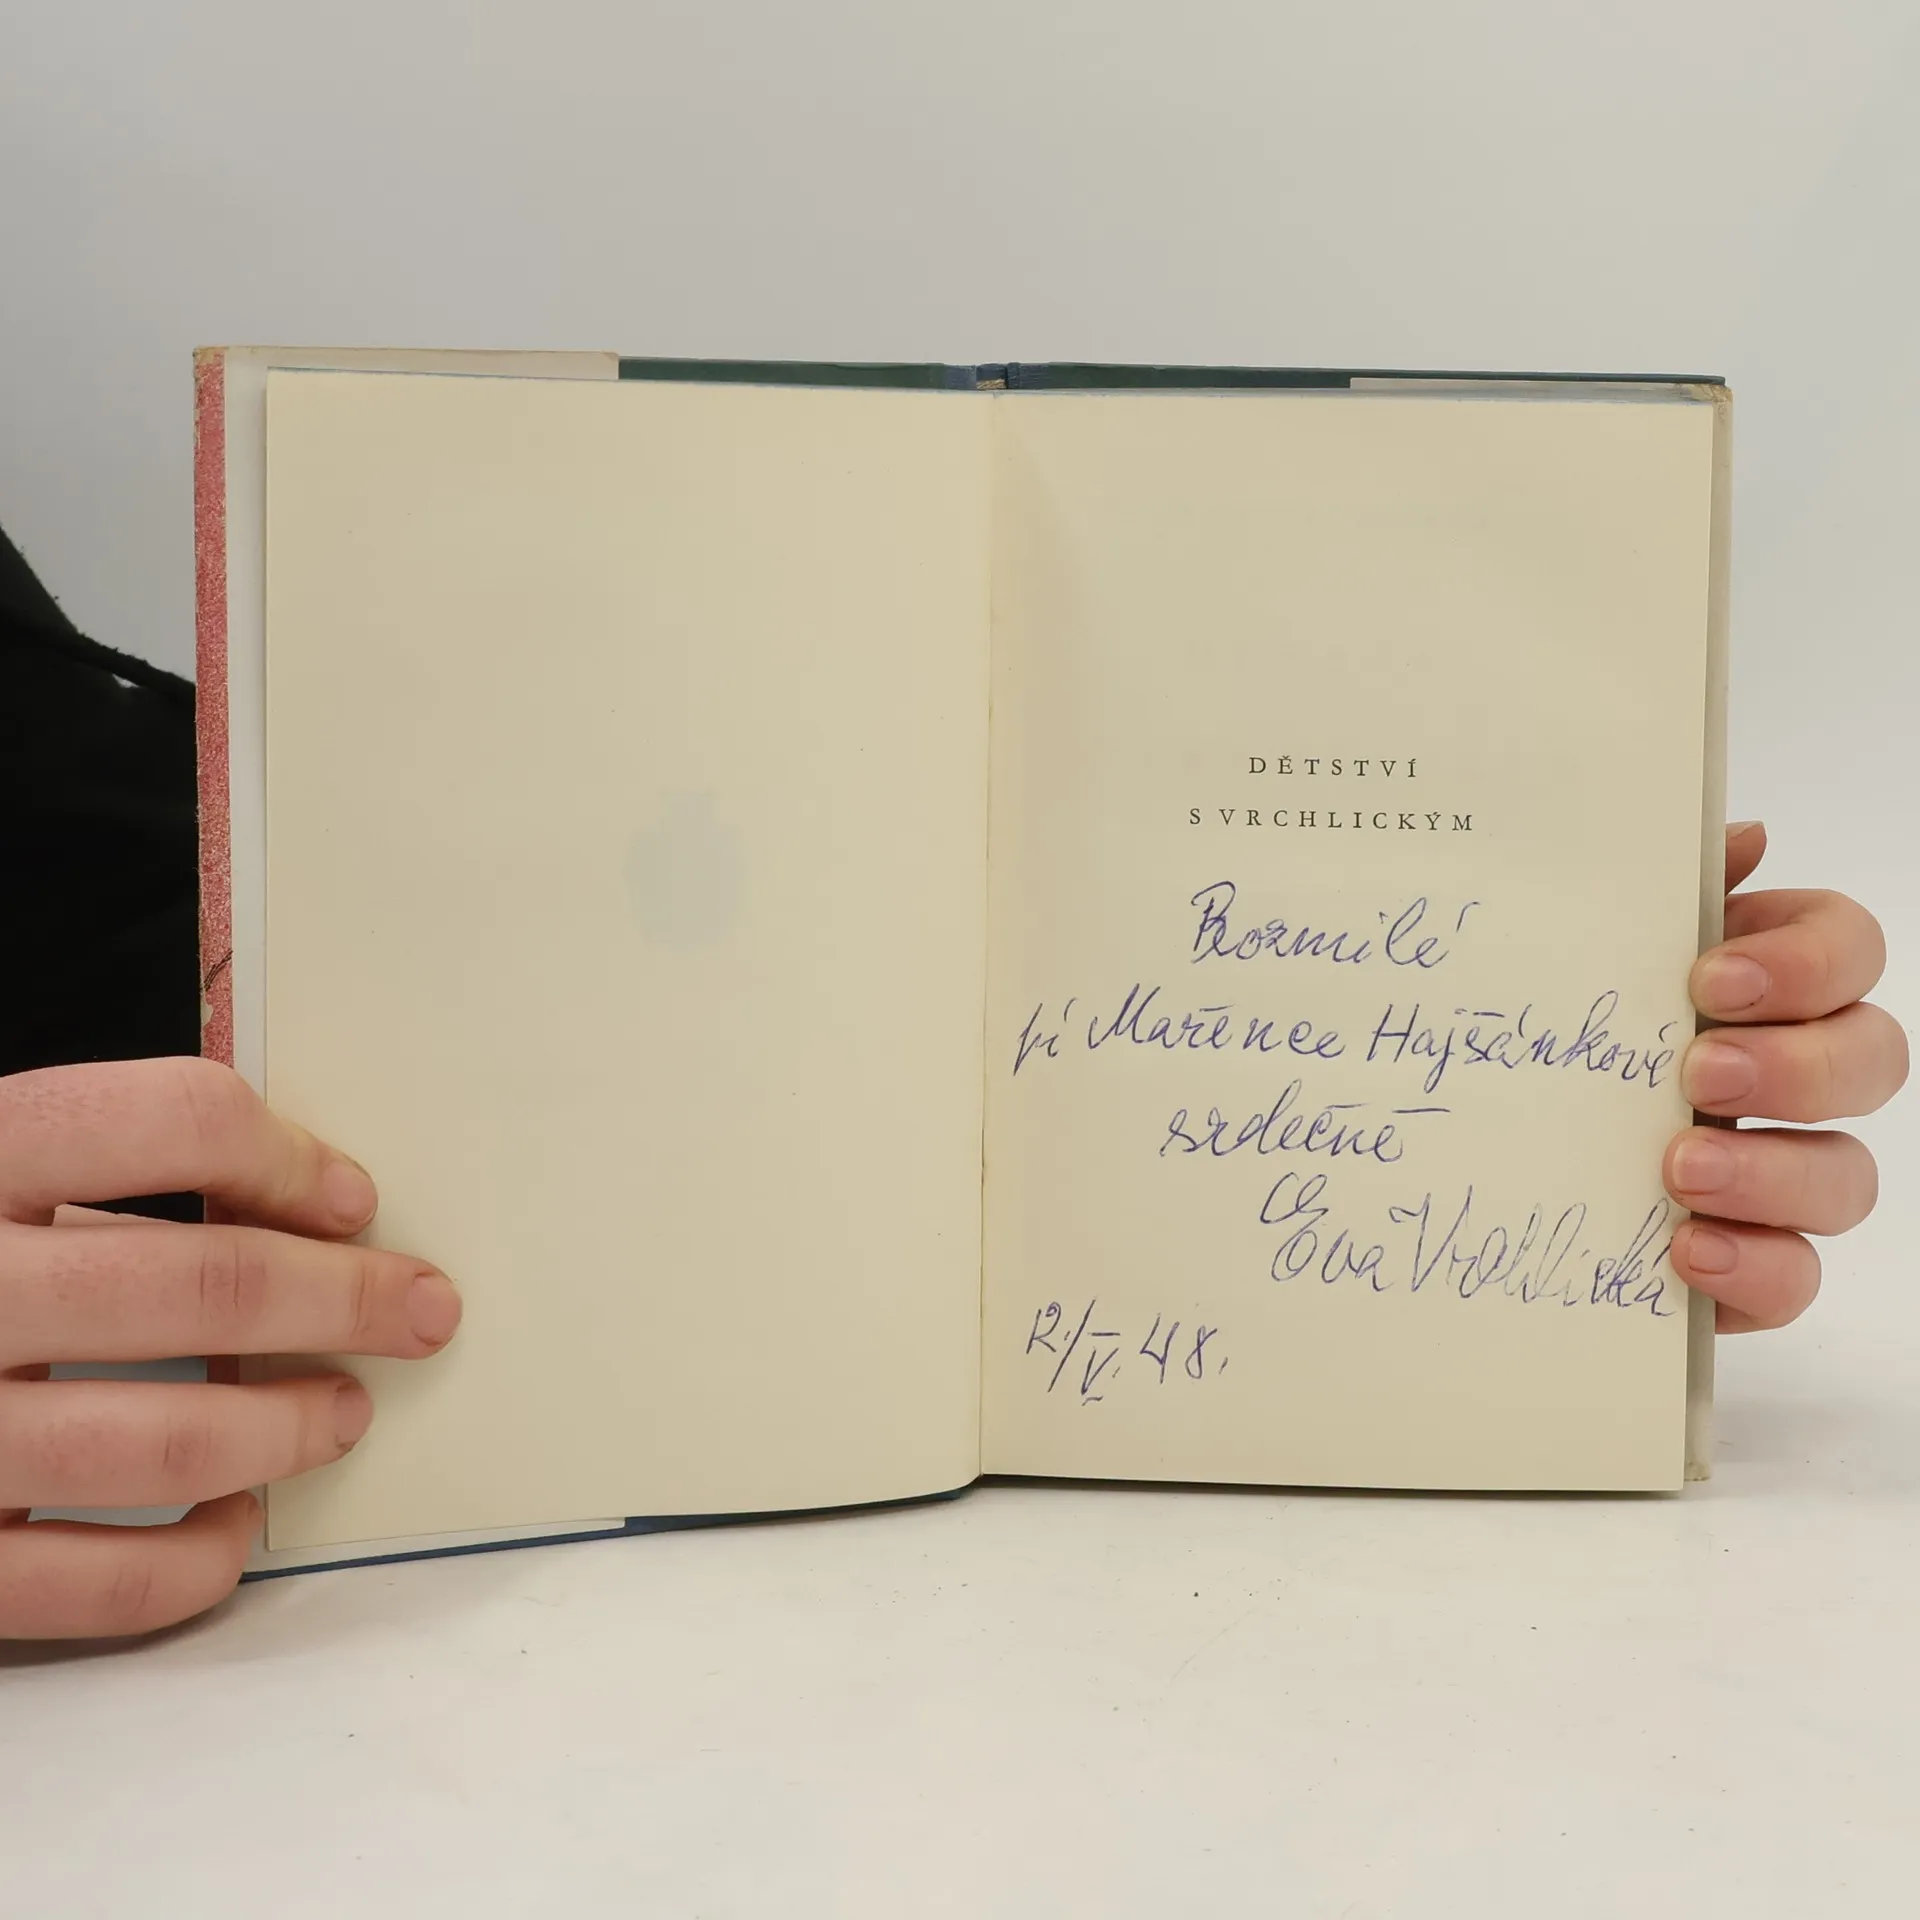 DĚTSTVÍ
S VRCHLICKÝM
Rozmilé
pí Mařence Hajšánkové
srdečně
Eva Vrchlická
12./V. 48.